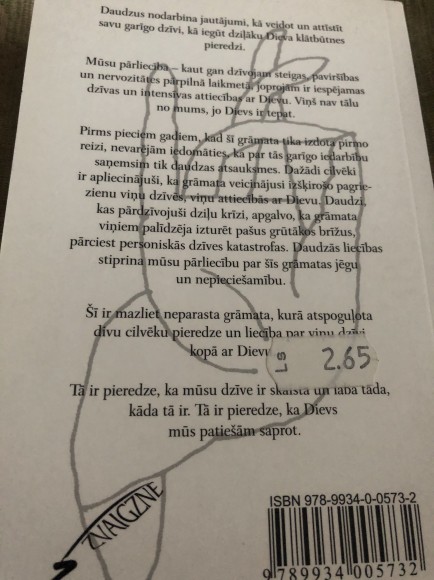 Daudzus nodarbina jautājumi, kā veidot un attīstīt
savu garīgo dzīvi, kā iegūt dziļāku Dieva klātbūtnes
pieredzi.
Mūsu pārliecība – kaut gan dzīvojam steigas, paviršības
un nervozitātes pārpilnā laikmetā, joprojām ir iespējamas
dzīvas un intensīvas attiecības ar Dievu. Viņš nav tālu
no mums, jo Dievs ir tepat.
Pirms pieciem gadiem, kad šī grāmata tika izdota pirmo
reizi, nevarējām iedomāties, ka par tās garīgo iedarbību
saņemsim tik daudzas atsauksmes. Dažādi cilvēki
ir apliecinājuši, ka grāmata veicinājusi izšķirošo pagrie-
zienu viņu dzīvēs, viņu attiecībās ar Dievu. Daudzi,
kas pārdzīvojuši dziļu krīzi, apgalvo, ka grāmata
viņiem palīdzēja izturēt pašus grūtākos brīžus,
pārciest personiskās dzīves katastrofas. Daudzās liecības
stiprina mūsu pārliecību par šīs grāmatas jēgu
un nepieciešamību.
Šī ir mazliet neparasta grāmata, kurā atspoguļota
divu cilvēku pieredze un liecība par viņu dzīvi
kopā ar Dievu
LS 2.65
Tā ir pieredze, ka mūsu dzīve ir skaista un laba tāda,
kāda tā ir. Tā ir pieredze, ka Dievs
mūs patiešām saprot.
ZVAIGZNE
ISBN 978-9934-0-0573-2
9 789934 005732